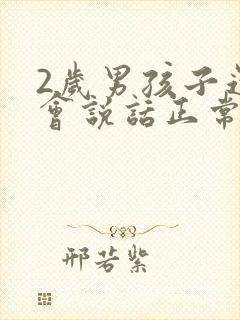 2歲男孩子還
會說話正常
邢若紫